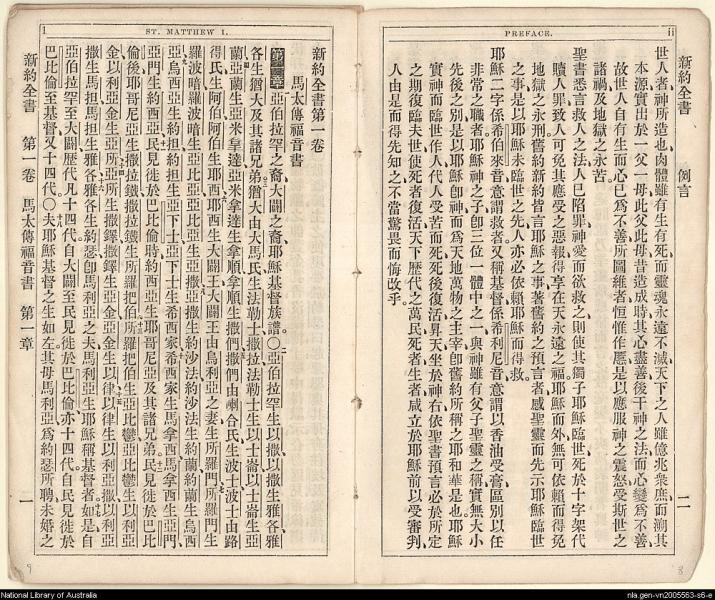 PREFACE. ii
新約全書 例言 二
世人者神所造也肉體雖有生有死而靈魂永遠不滅天下之人雖億兆衆庶而溯其
本源實出於一父一母此父此母昔造成時其心盡善後干神之法而心變爲不善
故世人自有生而心已爲不善所圖維者恒惟作慝是以應服神之震怒受斯世之
諸禍及地獄之永苦
聖書悉言救人之法人已陷罪神愛而欲救之則使其獨子耶穌臨世死於十字架代
贖人罪致人可免其應受之惡報得享在天永遠之福耶穌而外無可依賴而得免
地獄之永刑舊約新約皆言耶穌之事著舊約之預言者感聖靈而先示耶穌臨世
之事是以耶穌未臨世之先人亦必依賴耶穌而得救
耶穌二字係希伯來音意謂救者又稱基督係希利尼音意謂以香油受膏區別以任
非常之職者耶穌神之子卽三位一體中之一與神雖有父子聖靈之稱實無大小
先後之別是以耶穌卽神而爲天地萬物之主宰卽舊約所稱之耶和華是也耶穌
實神而臨世作人代人受苦而死死後復活昇天坐於神右依聖書預言必於所定
之期復臨夫世使死者復活天下歷代之萬民死者生者咸立於耶穌前以受審判
人由是而得先知之不當驚畏而悔改乎
1 ST. MATTHEW I.
新約全書第一卷
馬太傳福音書
第一章 亞伯拉罕之裔大闢之裔耶穌基督族譜○亞伯拉罕生以撒以撒生雅各雅
各生猶大及其諸兄弟猶大由大馬氏生法勒士撒拉法勒士生以士崙以士崙生亞
蘭亞蘭生亞米拿達亞米拿達生拿順拿順生撒們撒們由喇合氏生波士波士由路
得氏生阿伯阿伯生耶西耶西生大闢王大闢王由烏利亞之妻生所羅門所羅門生
羅波暗羅波暗生亞比亞亞比亞生亞撒亞撒生約沙法約沙法生約蘭約蘭生烏西
亞烏西亞生約担約担生亞下士亞下士生希西家希西家生馬拿西馬拿西生亞們
亞們生約西亞民見徙於巴比倫時約西亞生耶哥尼亞及其諸兄弟民見徙於巴比
倫後耶哥尼亞生撒拉鐵撒拉鐵生所羅把伯所羅把伯生亞比鬱亞比鬱生以利亞
金以利亞金生亞所亞所生撒鐸撒鐸生亞金亞金生以律以律生以利亞撒以利亞
撒生馬担馬担生雅各雅各生約瑟卽馬利亞之夫馬利亞生耶穌稱基督者如是自
亞伯拉罕至大闢歷代凡十四代自大闢至民見徙於巴比倫亦十四代自民見徙於
巴比倫至基督又十四代○夫耶穌基督之生如左其母馬利亞爲約瑟所聘未婚之
新約全書 第一卷 馬太傳福音書 第一章 一
National Library of Australia
nla.gen-vn2005563-s6-e